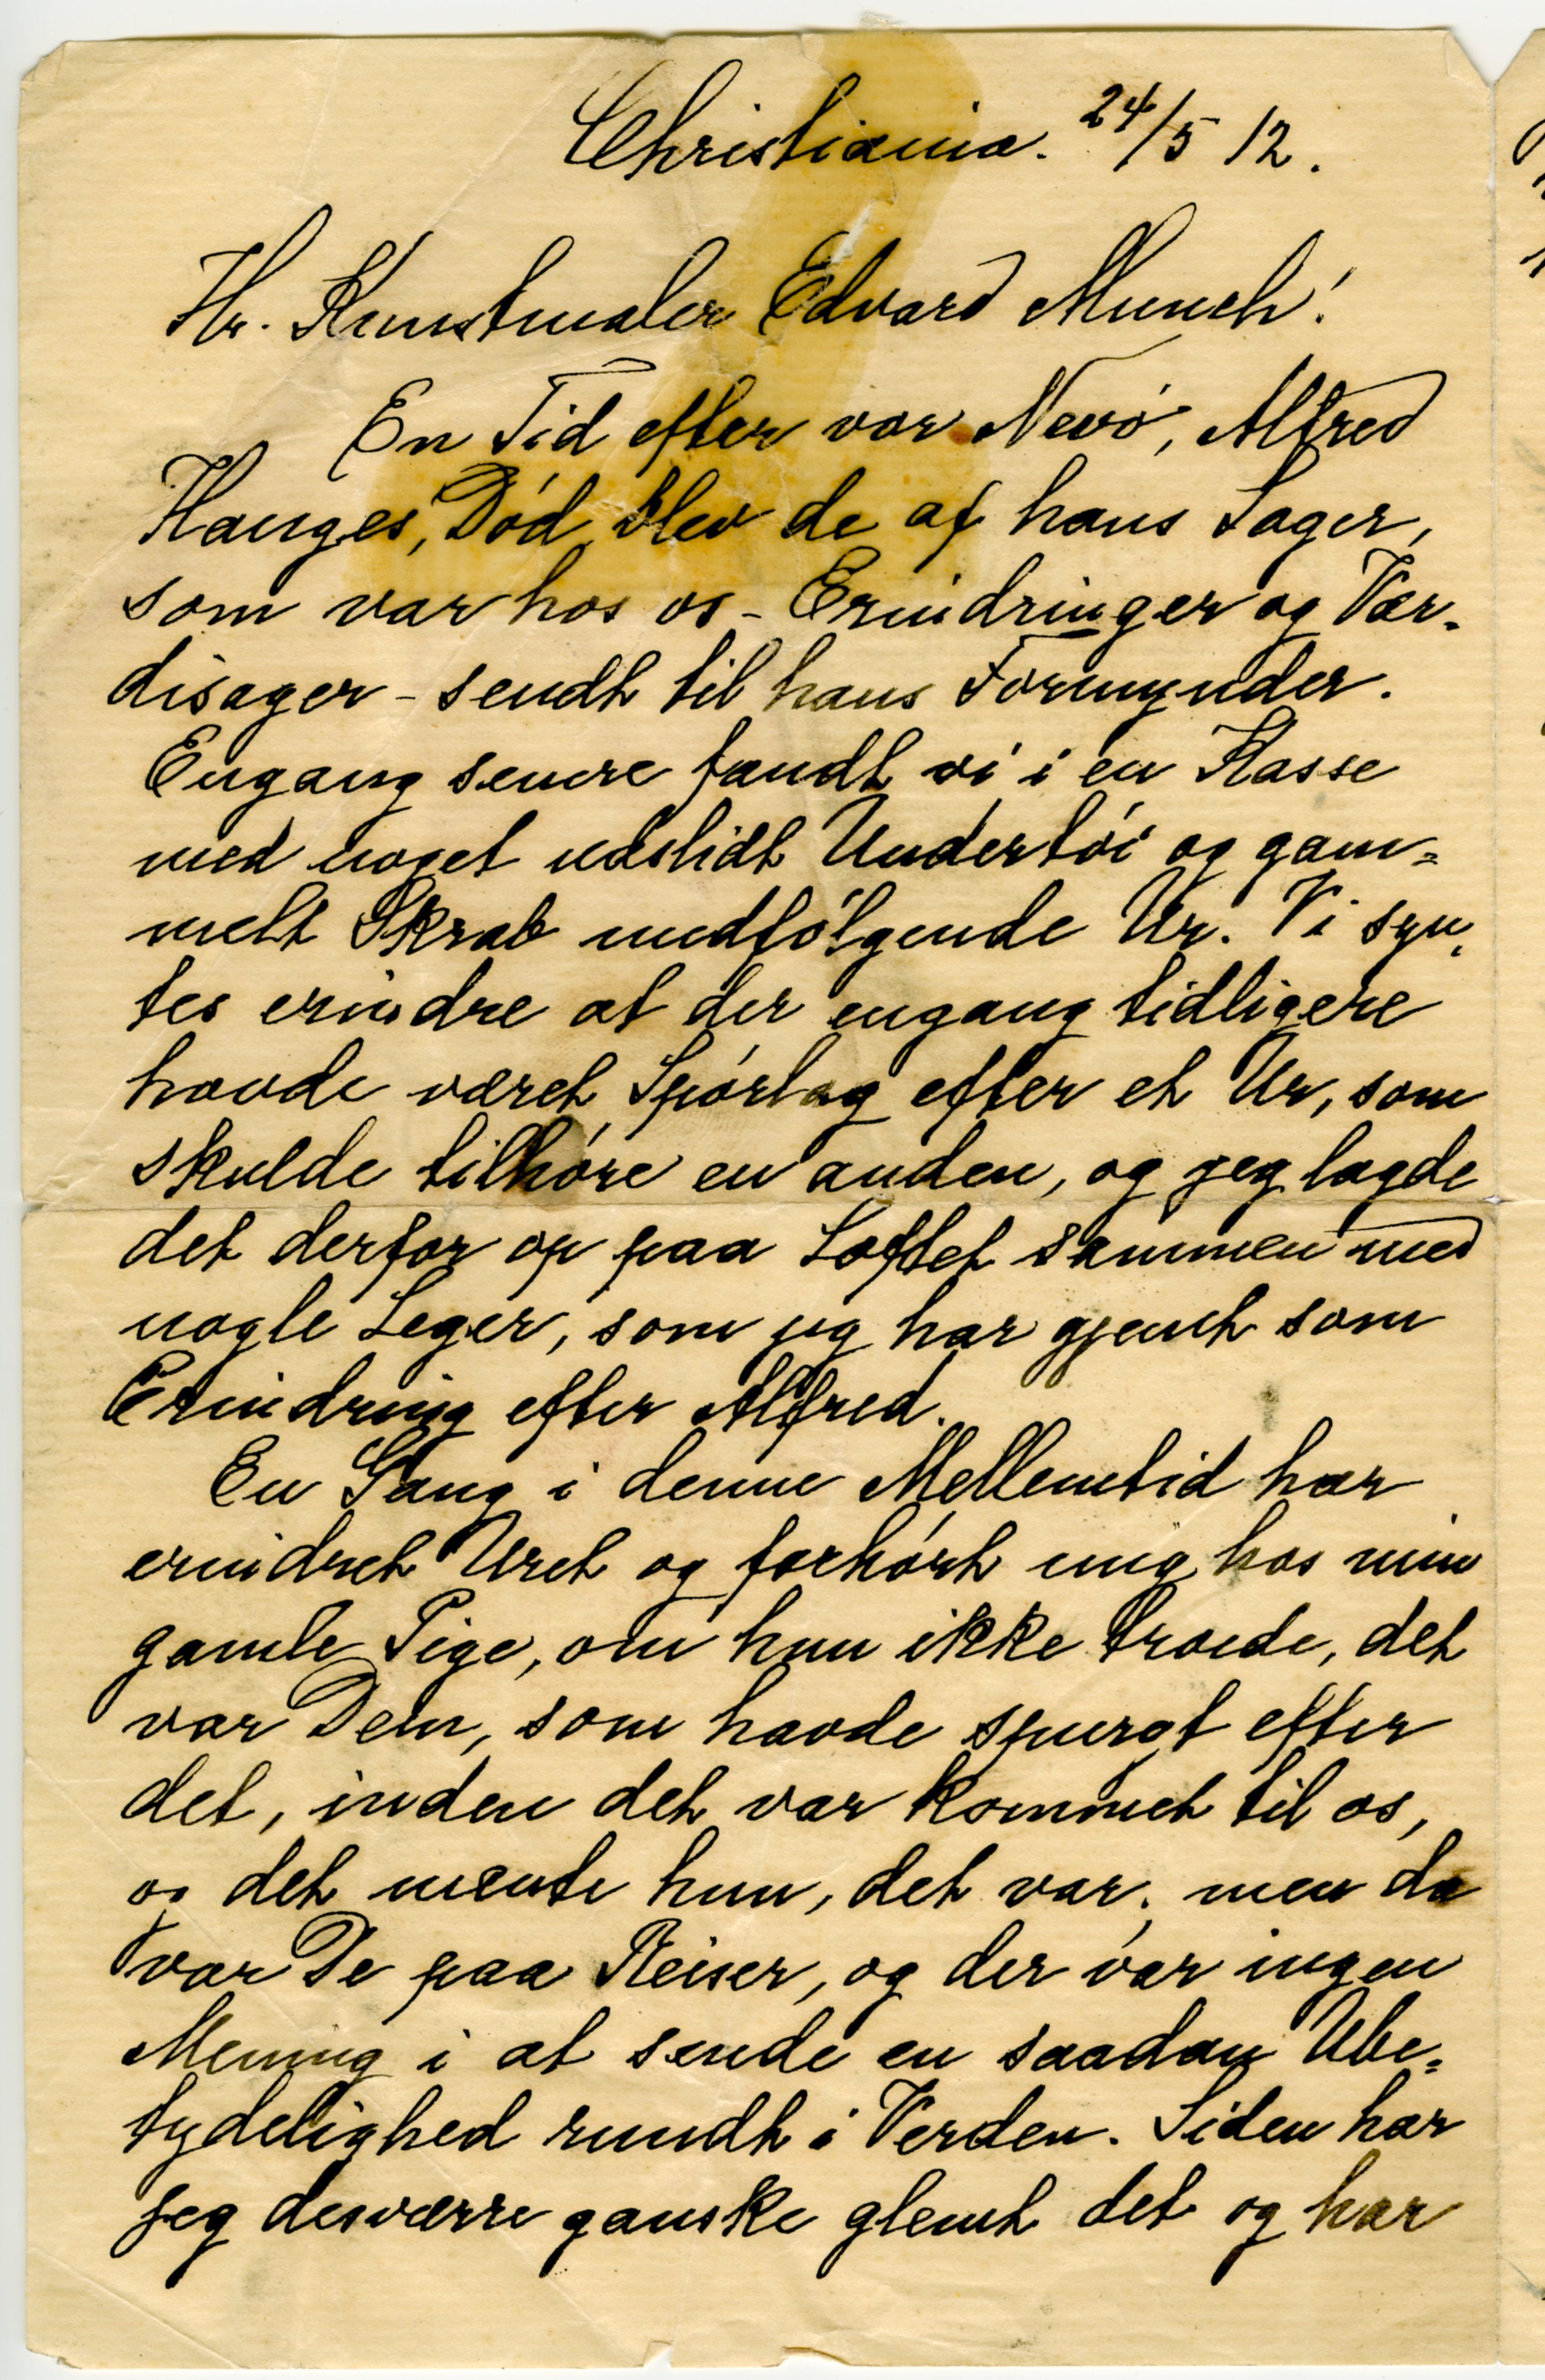 Christiania. 24/5 12.
Hr. Kunstmaler Edvard Munch!
En Tid efter vor Nevö, Alfred
Hauges, Död blev de af hans Sager,
som var hos os – Erindringer og Vær-
disager – sendt til hans Formynder.
Engang senere fandt vi i en Kasse
med noget udslidt Undertöi og gam=
melt Skrab medfölgende Ur. Vi syn-
tes erindre at der engang tidligere
havde været Spörlag efter et Ur, som
skulde tilhöre en anden, og jeg lagde
det derfor op paa Loftet sammen med
nogle Leger, som jeg har gjemt som
Erindring efter Alfred.
En Gang i denne Mellemtid har
erindret Uret og forhört mig hos min
gamle Pige, om hun ikke troede, det
var Dem, som havde spurgt efter
det, inden det var kommet til os,
og det mente hun, det var, men da
var De paa Reiser, og der var ingen
Mening i at sende en saadan Ube=
tydelighed rundt i Verden. Siden har
jeg desværre ganske glemt det og har